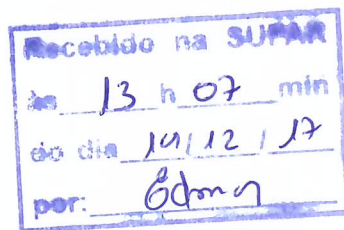 Recebido na SUPAR
às 13 h 07 min
do dia 19/12/17
por: Edmar